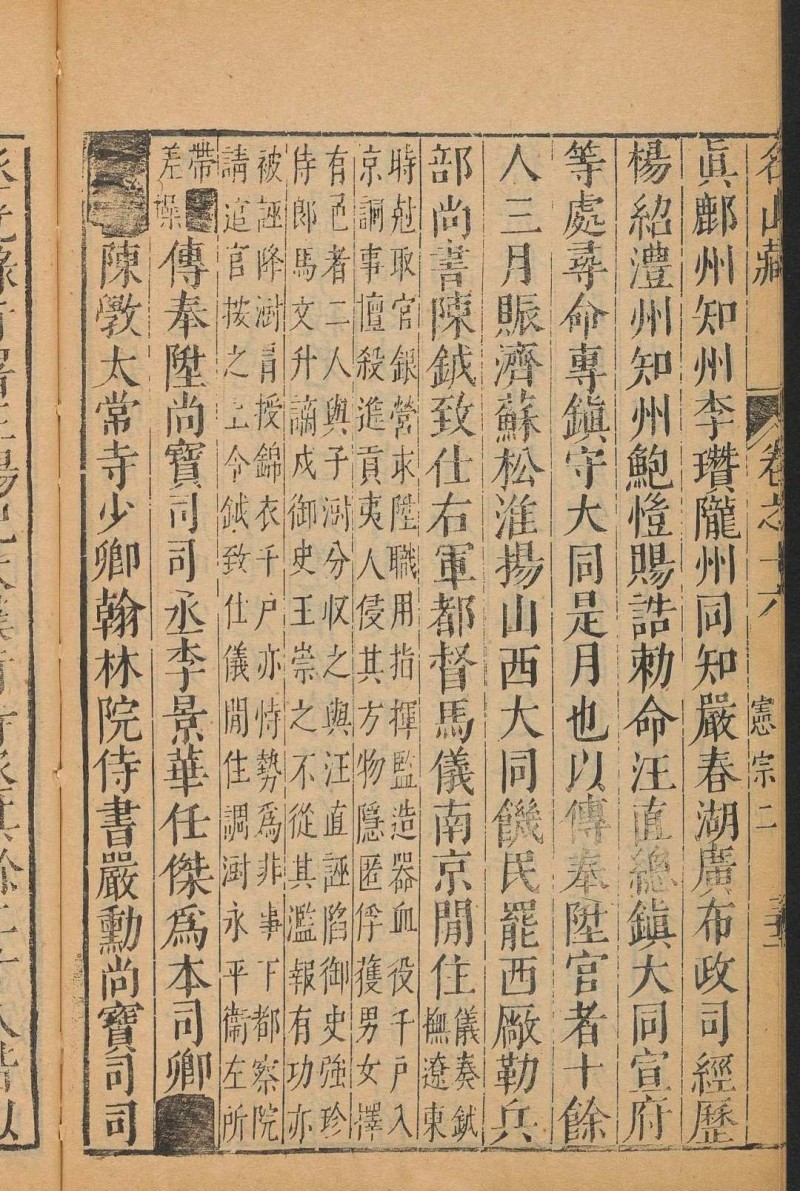 名山藏 卷之十六 憲宗二
眞鄜州知州李瓚隴州同知嚴春湖廣布政司經歷
楊紹澧州知州鮑愷賜誥勅命汪直總鎭大同宣府
等處尋命專鎭守大同是月也以傳奉陞官者十餘
人三月賑濟蘇松淮揚山西大同饑民罷西厰勒兵
部尚書陳鉞致仕右軍都督馬儀南京閒住儀奏鉞
撫遼東
時尅取官銀營求陞職用指揮監造器血役千戸入
京詗事擅殺進貢夷人侵其方物隱匿俘獲男女擇
有色者二人與子澍分収之與汪直誣陷御史強珍
侍郎馬文升謫戍御史王崇之不從其濫報有功亦
被誣降澍冐授錦衣千戸亦恃勢爲非事下都察院
請官按之上令鉞致仕儀閒住調澍永平衞左所
帶
差操
傳奉陞尚寶司司丞李景華任傑爲本司卿
陳斆太常寺少卿翰林院侍書嚴勳尚寶司司